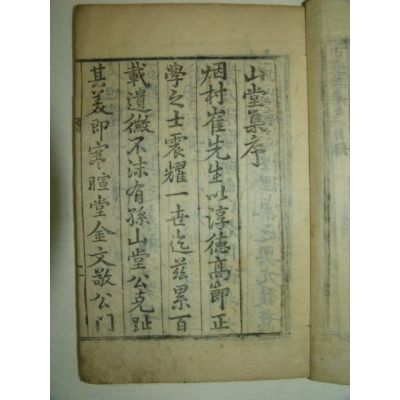 山堂集序
烟村崔先生以淳德高節正
學之士震耀一世迄茲累百
載遺徽不沫有孫山堂公克趾
其美即寒暄堂金文敬公門